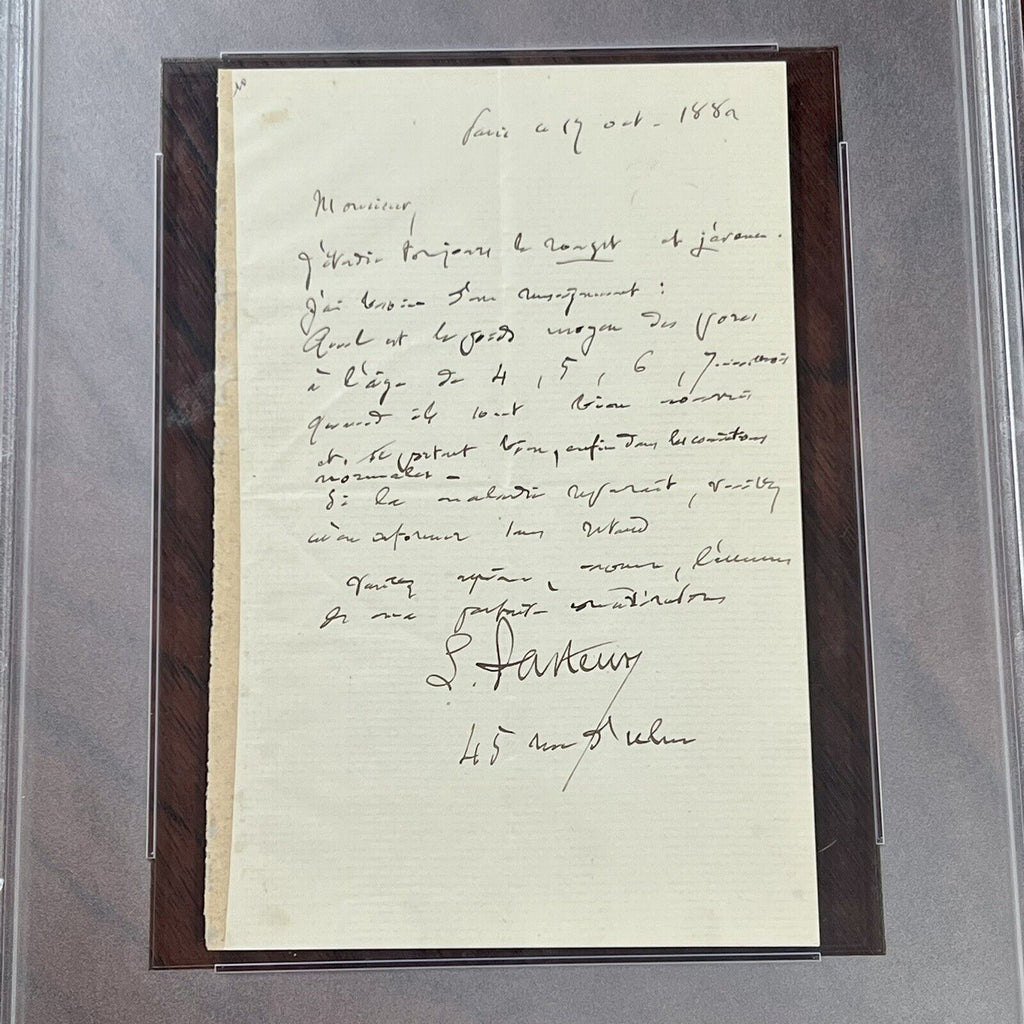 Paris ce 17 oct. 1882
Monsieur,
J'étudie toujours le rouget et j'avance.
J'ai besoin d'un renseignement :
Quel est le poids moyen des porcs
à l'âge de 4, 5, 6, 7 mois
quand ils sont bien nourris
et se portent bien, enfin dans les conditions
normales -
Si la maladie reparait, veuillez
m'en informer sans retard
Veuillez agréer, l'assurance
de ma parfaite considération
L. Pasteur
45 rue d'Ulm